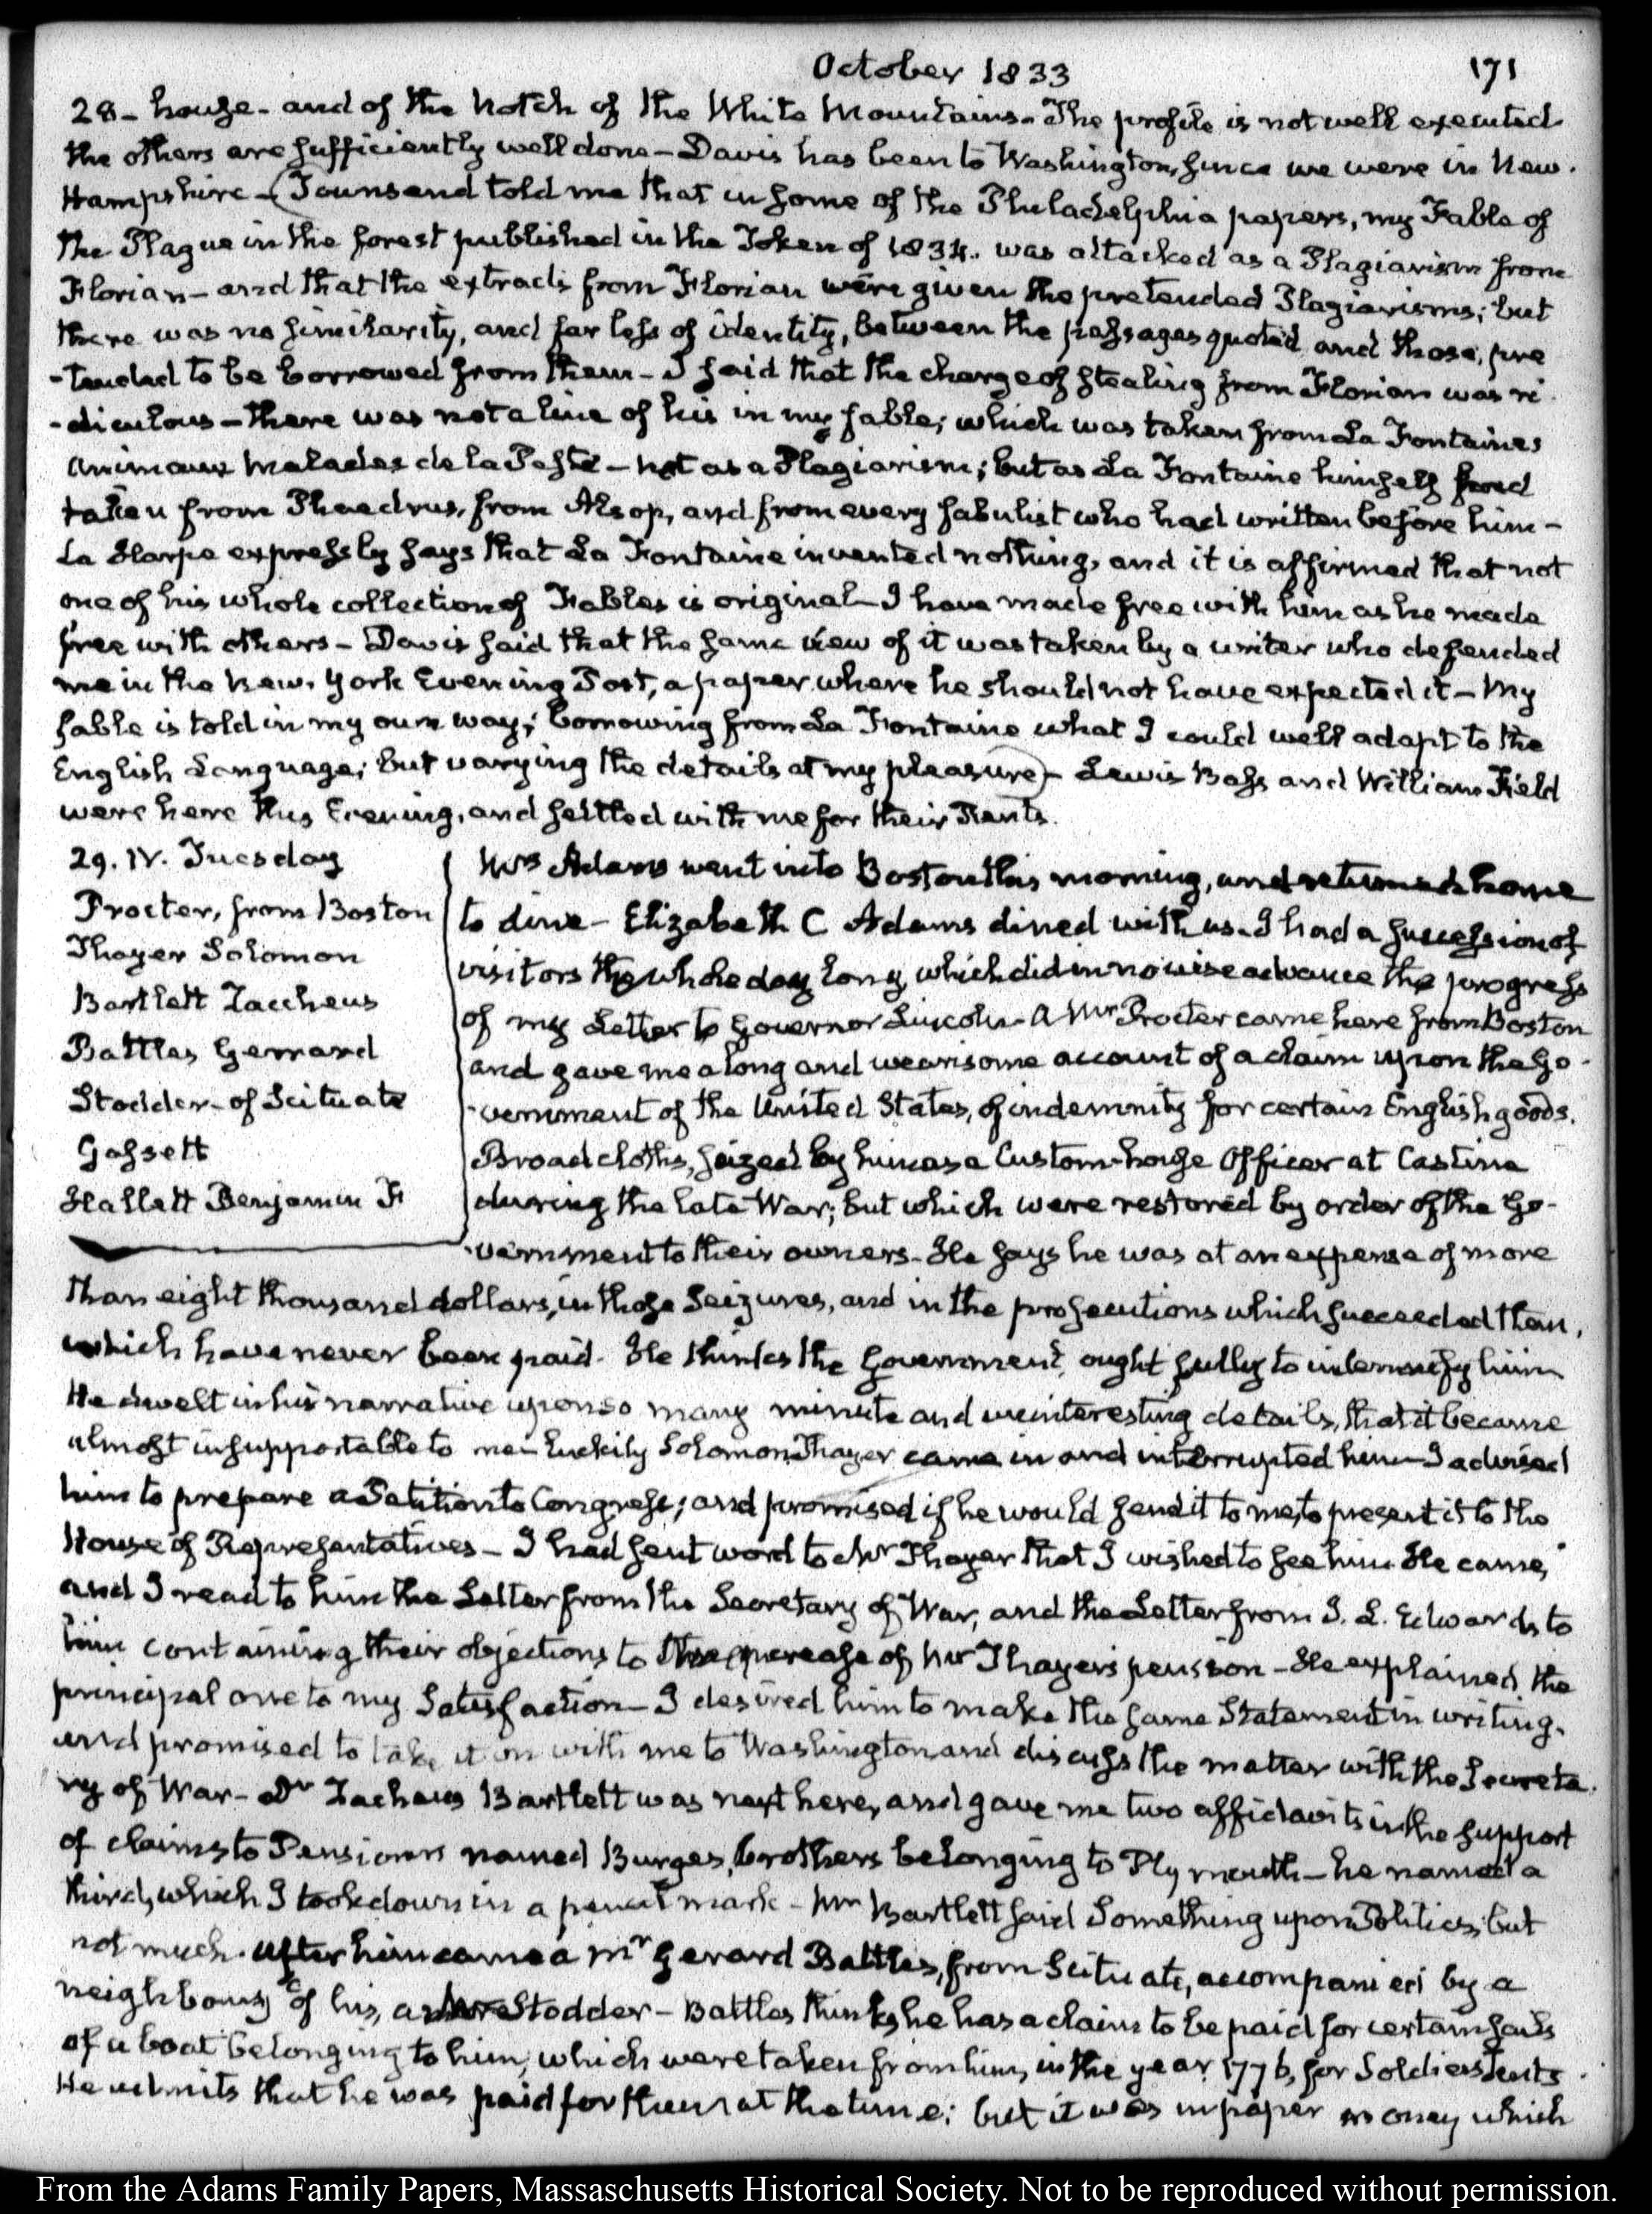 October 1833
171
28 - house - and of the Notch of the White Mountains - The profile is not well executed
the others are sufficiently well done - Davis has been to Washington, since we were in New-
Hampshire - (Townsend told me that in some of the Philadelphia papers, my Fable of
The Plague in the forest published in the Token of 1834. was attacked as a Plagiarism from
Florian - and that the extracts from Florian were given the pretended Plagiarisms; but
there was no similarity, and far less of identity, between the passages quoted and those, pre
-tended to be borrowed from them - I said that the charge of stealing from Florian was ri-
-diculous - there was not a line of his in my fable; which was taken from La Fontaines
Animaux Malades de la Peste - not as a Plagiarism; but as La Fontaine himself had
taken from Phaedrus, from Aesop, and from every fabulist who had written before him -
La Harpe expressly says that La Fontaine invented nothing, and it is affirmed that not
one of his whole collection of Fables is original - I have made free with him as he made
free with others - Davis said that the same view of it was taken by a writer who defended
me in the New-York Evening Post, a paper where he should not have expected it - My
fable is told in my own way; borrowing from La Fontaine what I could well adapt to the
English Language; but varying the details at my pleasure) - Lewis Bass and William Field
were here this Evening, and settled with me for their Rents.
29. IV. Tuesday
Procter, from Boston
Thayer Solomon
Bartlett Zaccheus
Battles Gerrard
Stodder - of Scituate
Gassett
Hallett Benjamin F
Mrs Adams went into Boston this morning, and returned home
to dine - Elizabeth C Adams dined with us. I had a succession of
visitors the whole day long, which did in no wise advance the progress
of my Letter to Governor Lincoln - A Mr Procter came here from Boston
and gave me a long and wearisome account of a claim upon the Go-
-vernment of the United States, of indemnity for certain English goods.
Broad cloths, seized by him as a Custom-house Officer at Castine
during the late War; but which were restored by order of the Go-
-vernment to their owners - He says he was at an expense of more
than eight thousand dollars, in those seizures, and in the prosecutions which succeeded them,
which have never been paid. He thinks the Government, ought fully to indemnify him
He dwelt in his narrative upon so many minute and uninteresting details, that it became
almost insupportable to me - luckily Solomon Thayer came in and interrupted him - I advised
him to prepare a Petition to Congress; and promised if he would send it to me, to present it to the
House of Representatives - I had sent word to Mr Thayer that I wished to see him. He came,
and I read to him the Letter from the Secretary of War, and the Letter from J. L. Edwards to
him containing their objections to the increase of Mr Thayer's pension - He explained the
principal one to my satisfaction - I desired him to make the same Statement in writing.
and promised to take it on with me to Washington and discuss the matter with the Secreta-
ry of War - Dr Zacheus Bartlett was next here, and gave me two affidavits in the support
of claims to Pensions named Burges, brothers belonging to Plymouth - he named a
third, which I took down in a pencil mark - Mr Bartlett said something upon Politics; but
not much. After him came a Mr Gerard Battles, from Scituate, accompanied by a
neighbour of his, a Stodder - Battles thinks he has a claim to be paid for certain sails
of a boat belonging to him, which were taken from him, in the year 1776, for Soldiers Tents.
He admits that he was paid for them at the time; but it was in paper money which
From the Adams Family Papers, Massaschusetts Historical Society. Not to be reproduced without permission.